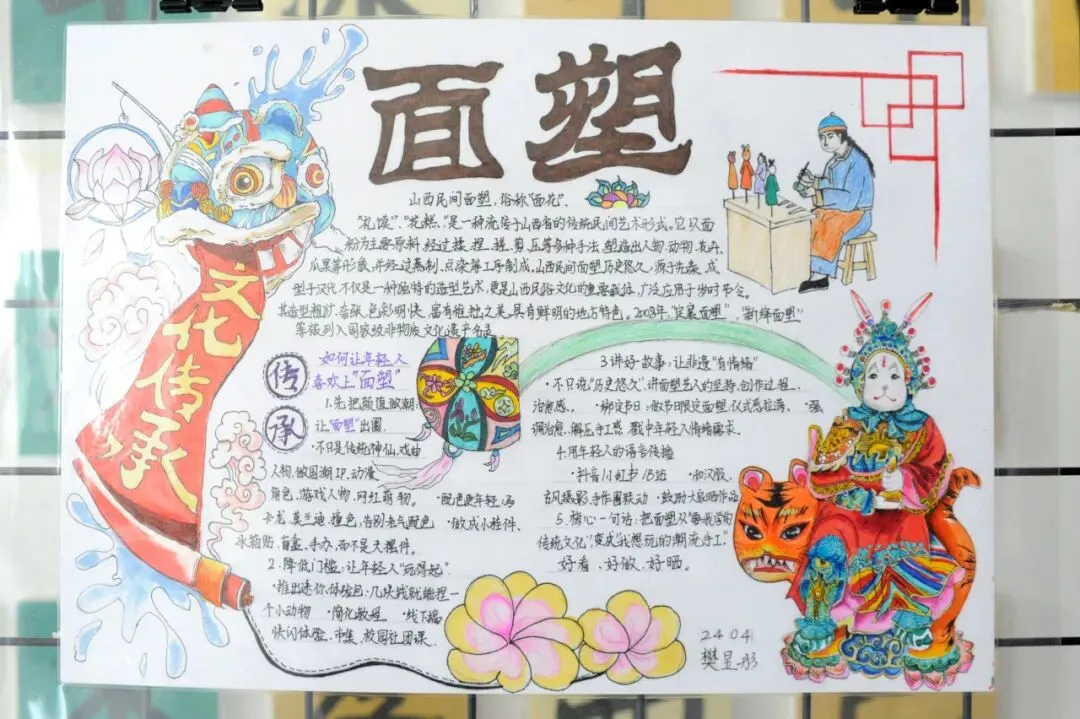 面塑
山西民间面塑,俗称"面花"、
"礼馍"、花糕,是一种流传于山西省的传统民间艺术形式。它以面
粉为主要原料,经过揉、捏、搓、剪、压等多种手法,塑造出人物、动物、花卉、
瓜果等形象,并经过蒸制、点染等工序制成。山西民间面塑历史悠久,源于先秦,成
型于汉代,不仅是一种独特的造型艺术,更是山西民俗文化的重要载体,广泛应用于岁时节令。
其造型粗犷、夸张,色彩明快,富有粗拙之美,具有鲜明的地方特色。2008年,"定襄面塑"、"新绛面塑"
等被列入国家级非物质文化遗产名录。
文化传承
传
承
如何让年轻人
喜欢上"面塑"
1.先把颜值做潮:
让"面塑"出圈
·不只是传统神仙、戏曲
人物,做国潮IP、动漫
角色、游戏人物、网红萌物。·配色更年轻:马
卡龙、莫兰迪、撞色,告别老气配色 ·做成小挂件、
冰箱贴、盲盒、手办,而不是大摆件。
2.降低门槛:让年轻人"玩得起"
·推出迷你体验包:几块钱就能捏一
个小动物 ·简化教程 ·线下端
快闪体验、市集、校园社团课。
3.讲好故事:让非遗"有情绪"
·不只说"历史悠久",讲面塑艺人的坚持、创作过程、
治愈感。·绑定节日:做节日限定面塑,仪式感拉满。·强
调治愈、解压手工感,戳中年轻人情绪需求。
4.用年轻人的语言传播
·抖音/小红书/B站 ·和汉服、
古风摄影、手作圈联动 ·鼓励大家晒作品
5.核心一句话:把面塑从"要我学的
传统文化",变成"我想玩的潮流手工"
好看、好做、好晒。
2404
樊星彤